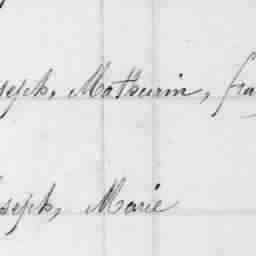 seph, Mathurin, fra
seph, Marie